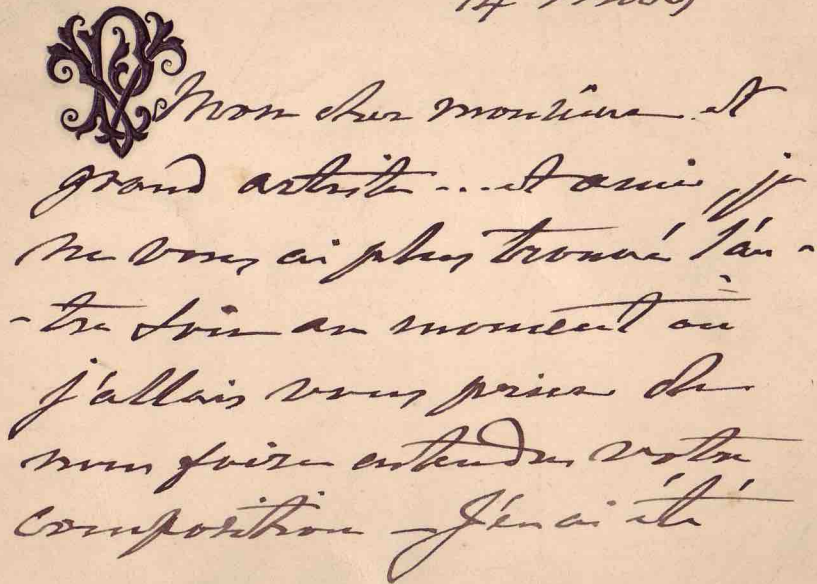 14 mars
Mon cher monsieur et
grand artiste... et ami, je
ne vous ai plus trouvé l'au-
-tre soir au moment où
j'allais vous prier de
nous faire entendre votre
composition - J'en ai été